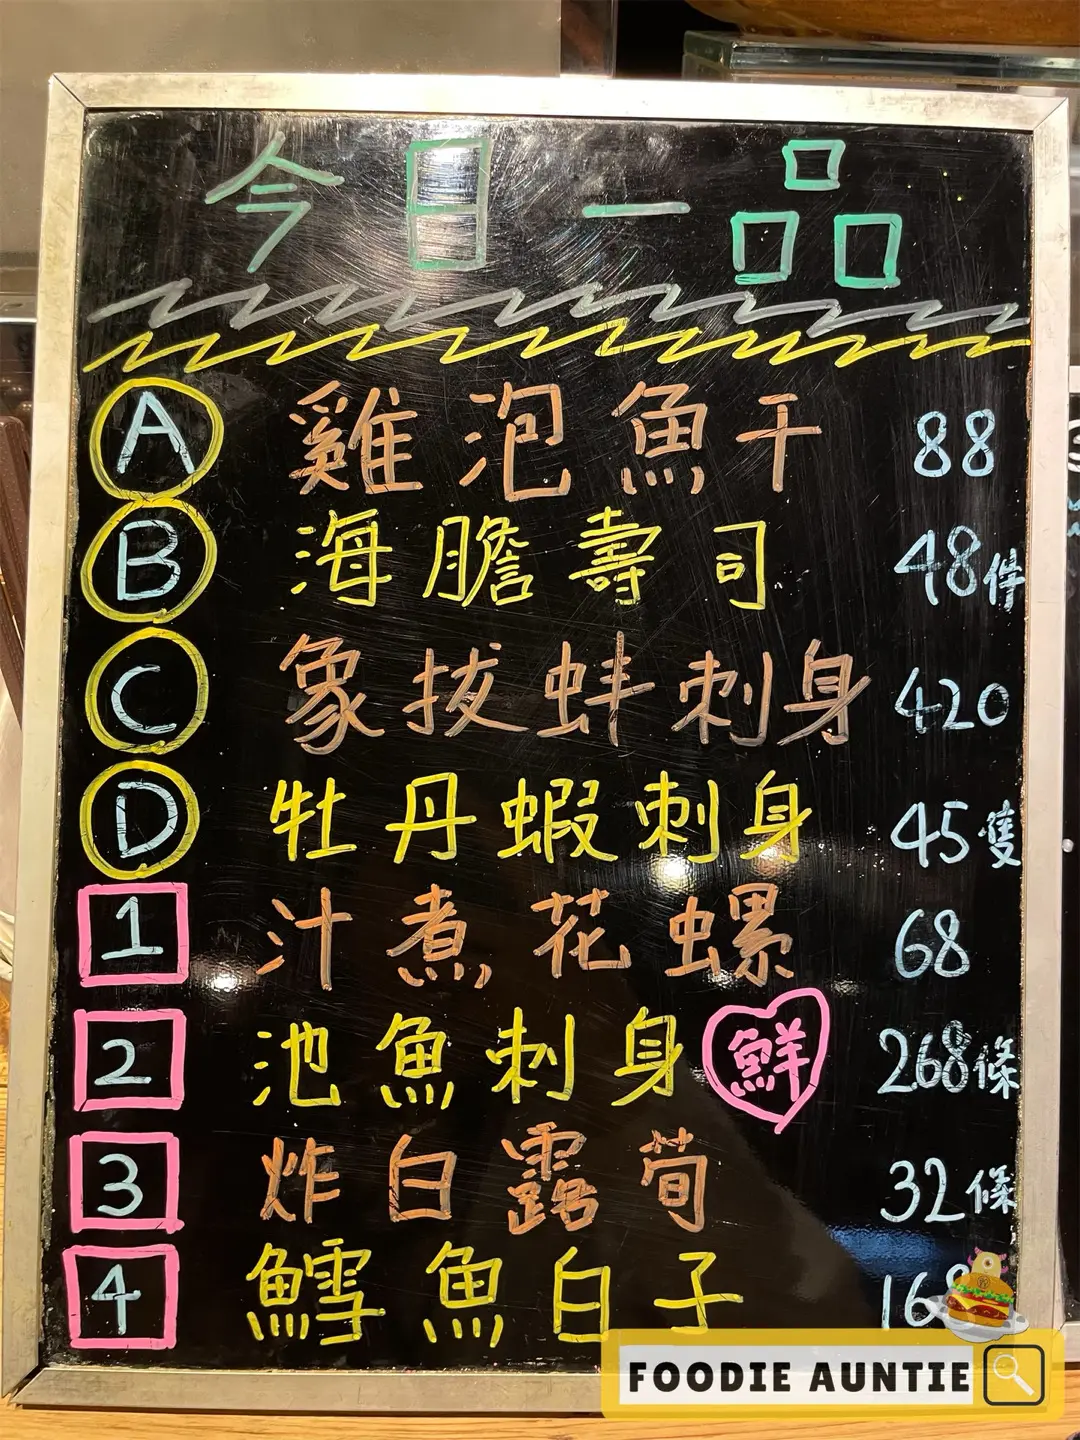 今日一品
A 雞泡魚干 88
B 海膽壽司 48件
C 象拔蚌刺身 420
D 牡丹蝦刺身 45隻
1 汁煮花螺 68
2 池魚刺身 鮮 268條
3 炸白露荀 32條
4 鱈魚白子
FOODIE AUNTIE